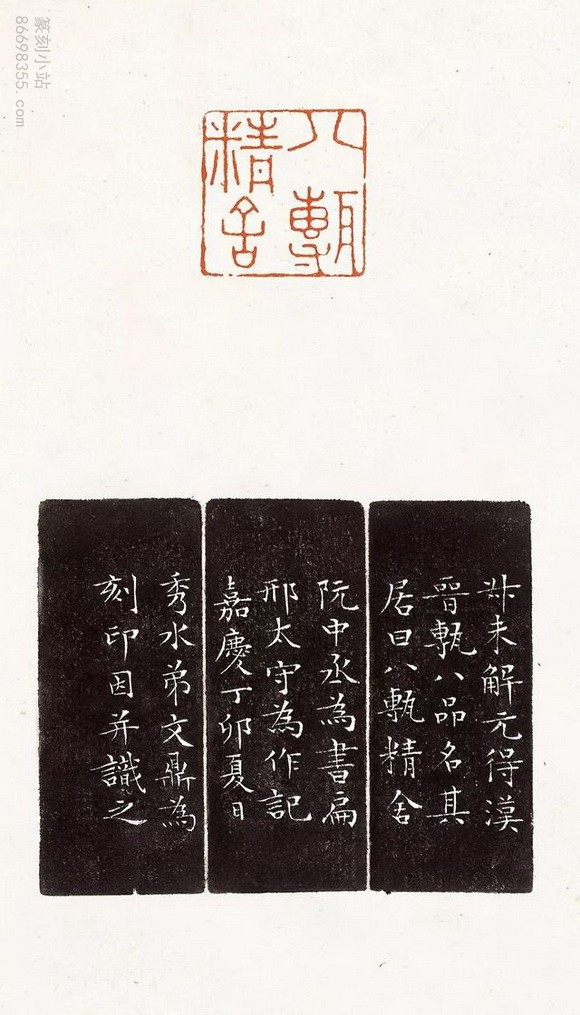 篆刻小站
86698355.com
八甎
精舍
叔未解元得漢
晉甎八品名其
居曰八甎精舍
阮中丞為書扁
邢太守為作記
嘉慶丁卯夏日
秀水弟文鼎為
刻印因并識之